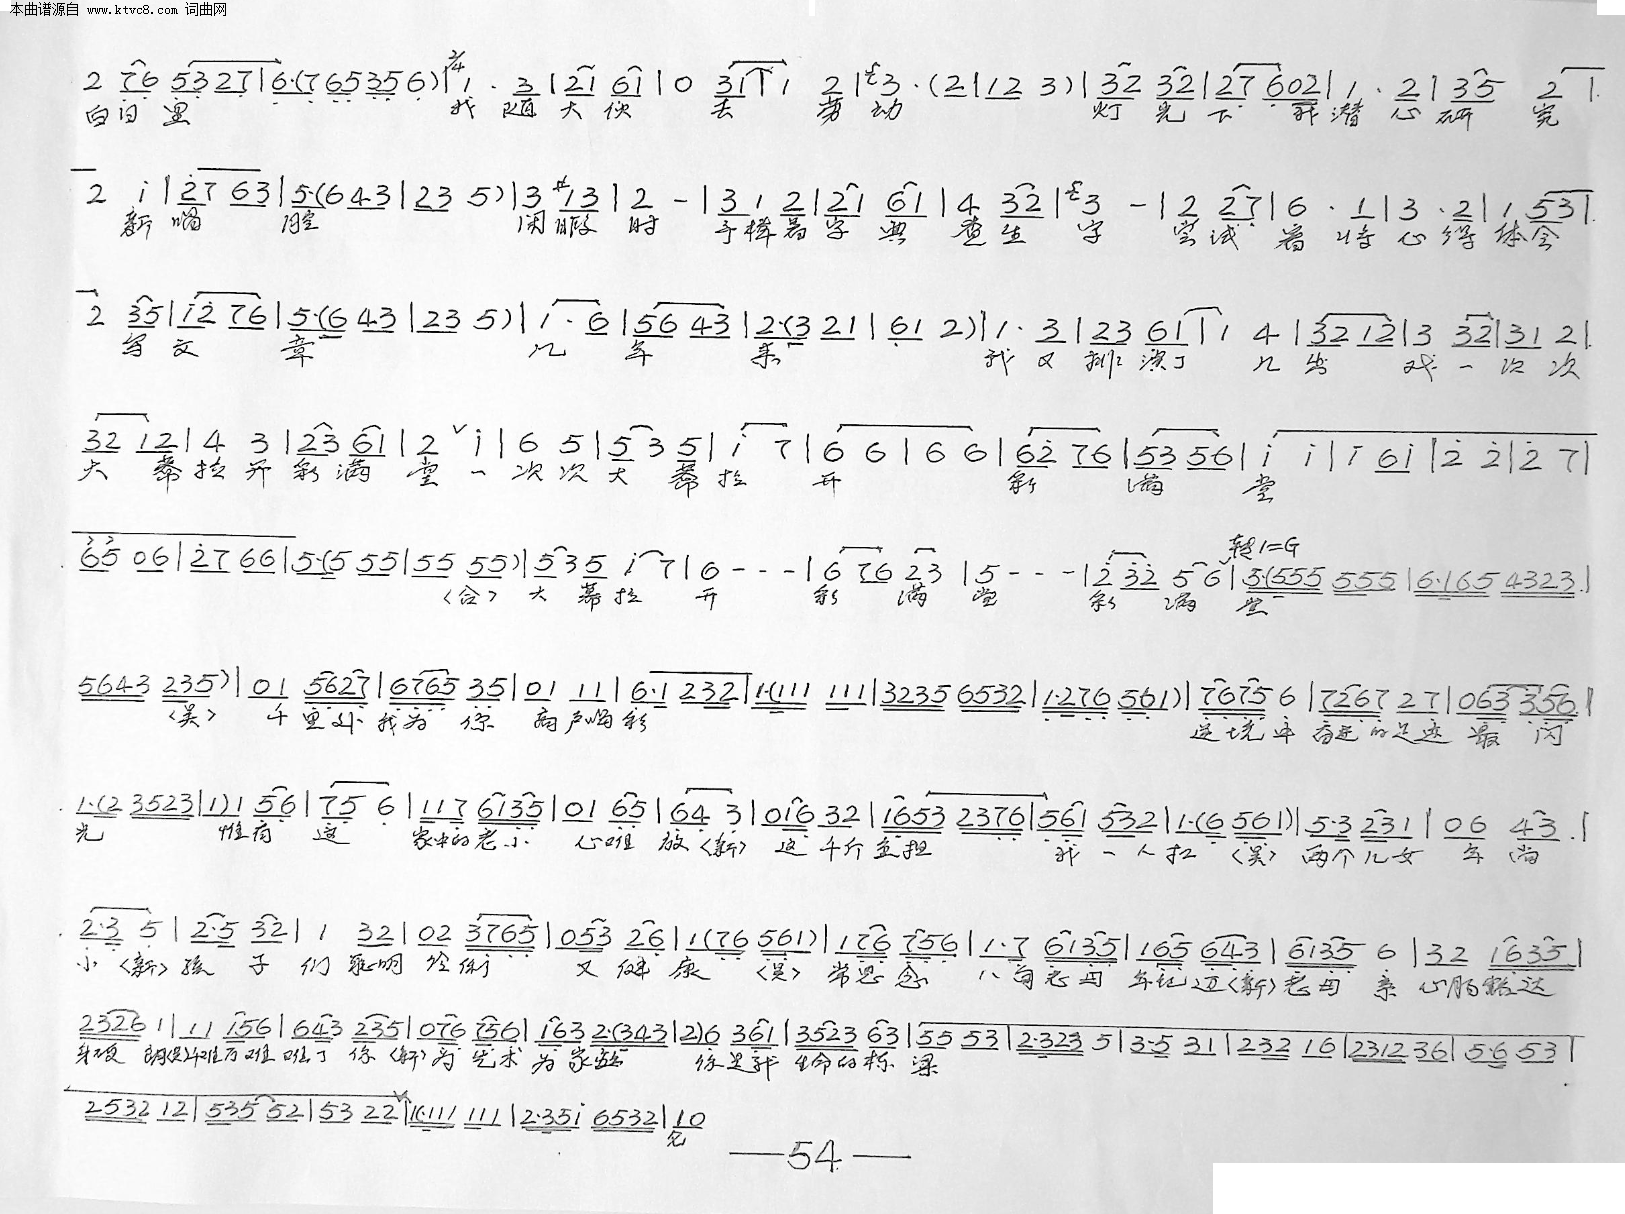 本曲谱源自 www.ktvc8.com 词曲网
2 76 53 27 | 6·(7 65356) | 2/4 1 · 3 | 21 61 | 0 31 | 1 2 | 3 · (2 | 12 3) | 32 32 | 27 602 | 1 · 2 | 35 2 |
白日里 我 随 大 伙 去 劳 动 灯 光 下 我 潜 心 研 究
2 i | 27 63 | 5·(6 43 | 23 5) | 3 #13 | 2 - | 3 1 2 | 21 61 | 4 32 | 3 - | 2 27 | 6 · 1 | 3 · 2 | 1 53 |
新 唱 腔 闲 暇 时 手 捧 着 字 典 查 生 字 尝 试 着 将 心 得 体 会
2 35 | i2 76 | 5·(6 43 | 23 5) | 1 · 6 | 56 43 | 2·(3 21 | 61 2) | 1 · 3 | 23 61 | 1 4 | 32 12 | 3 32 | 31 2 |
写 文 章 几 年 来 我 又 排 演了 几 出 戏 一 次 次
32 12 | 4 3 | 23 61 | 2 i | 6 5 | 5 3 5 | i 7 | 6 6 | 6 6 | 62 76 | 53 56 | i i | i 6i | 2 2 | 2 7 |
大 幕 拉 开 彩 满 堂 一 次 次 大 幕 拉 开 彩 满 堂
65 06 | 27 66 | 5·(5 55 | 55 55) | 5 35 i 7 | 6 - - - | 6 76 23 | 5 - - - | 2 32 5 6 | 转1=G 5·(555 555 | 6·165 4323 |
〈合〉 大 幕 拉 开 彩 满 堂 彩 满 堂
5643 235) | 01 5627 | 6765 35 | 01 11 | 6·1 232 | 1·(111 111 | 3235 6532 | 1·276 561) | 7675 6 | 7267 27 | 063 356 |
〈吴〉 千 里外 我为 你 高声唱彩 这 些年 奋进 的 足迹 最 闪
1·(2 3523 | 1) 1 56 | 75 6 | 117 6135 | 01 65 | 64 3 | 016 32 | 1653 2376 | 561 532 | 1·(6 561) | 5·3 231 | 06 43 |
光 惟有 这 家中的 老 小 心难 放 〈新〉 这 千斤 重担 我 一 人 扛 〈吴〉 两个 儿女 年 尚
2·3 5 | 2·5 32 | 1 32 | 02 3765 | 053 26 | 1(76 561) | 176 756 | 1·7 6135 | 165 643 | 6135 6 | 32 1635 |
小 〈新〉 孩 子 们 聪明 伶俐 又 健 康 〈吴〉 常思 念 八旬 老母 年纪迈 〈新〉 老母 亲 心胸豁达
2326 1 | 11 i56 | 643 235 | 076 756 | 163 2·(343 | 2)6 361 | 3523 63 | 55 53 | 2·323 5 | 3·5 31 | 232 16 | 2312 36 | 5·6 53 |
难为 难 难了 你 〈新〉 为 艺术 为 家庭 你是我 生命的栋 梁
2532 12 | 535 52 | 53 22 | 1·111 111 | 2·35i 6532 | 10
—54—